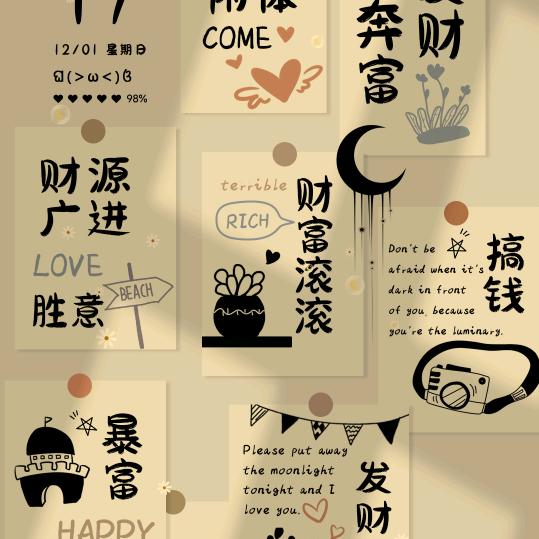 12/01 星期日
98%
COME
奔富
发财
财源
广进
LOVE
胜意
BEACH
terrible
RICH
财富滚滚
Don't be
afraid when it's
dark in front
of you, because
you're the luminary.
搞钱
暴富
HAPPY
Please put away
the moonlight
tonight and I
love you.
发财